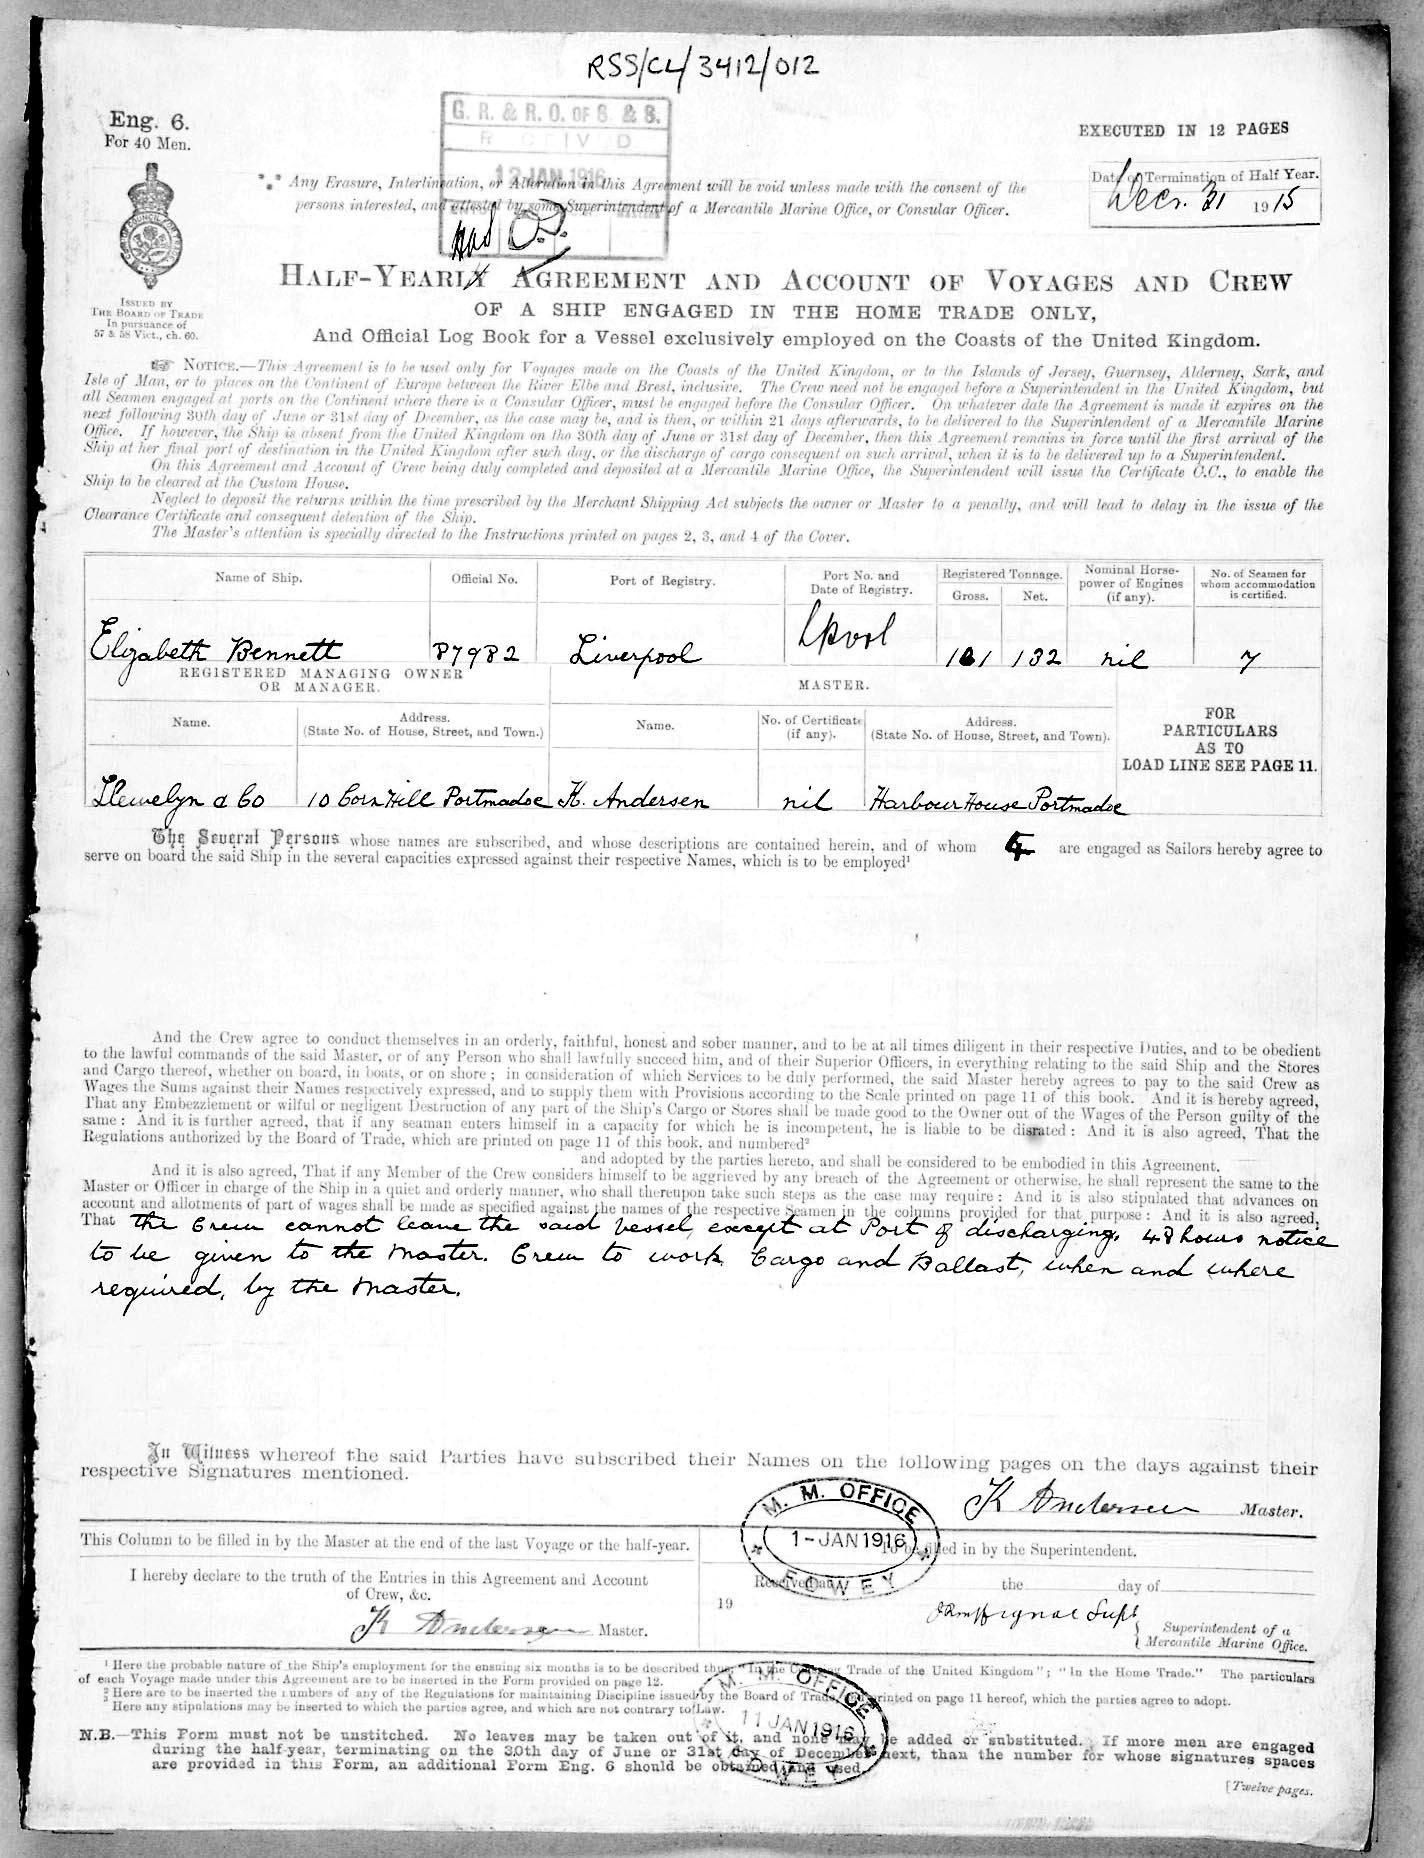 RSS/CL/3412/012
Eng. 6.
For 40 Men.
G. R. & R. O. OF S. & S.
RECEIVED
12 JAN 1916
EXECUTED IN 12 PAGES
Any Erasure, Interlineation, or Alteration in this Agreement will be void unless made with the consent of the
persons interested, and attested by some Superintendent of a Mercantile Marine Office, or Consular Officer.
Date of Termination of Half Year.
Decr. 31 1915
ISSUED BY
THE BOARD OF TRADE
In pursuance of
57 & 58 Vict., ch. 60.
HALF-YEARLY AGREEMENT AND ACCOUNT OF VOYAGES AND CREW
OF A SHIP ENGAGED IN THE HOME TRADE ONLY,
And Official Log Book for a Vessel exclusively employed on the Coasts of the United Kingdom.
☞ NOTICE.—This Agreement is to be used only for Voyages made on the Coasts of the United Kingdom, or to the Islands of Jersey, Guernsey, Alderney, Sark, and
Isle of Man, or to places on the Continent of Europe between the River Elbe and Brest, inclusive. The Crew need not be engaged before a Superintendent in the United Kingdom, but
all Seamen engaged at ports on the Continent where there is a Consular Officer, must be engaged before the Consular Officer. On whatever date the Agreement is made it expires on the
next following 30th day of June or 31st day of December, as the case may be, and is then, or within 21 days afterwards, to be delivered to the Superintendent of a Mercantile Marine
Office. If however, the Ship is absent from the United Kingdom on the 30th day of June or 31st day of December, then this Agreement remains in force until the first arrival of the
Ship at her final port of destination in the United Kingdom after such day, or the discharge of cargo consequent on such arrival, when it is to be delivered up to a Superintendent.
On this Agreement and Account of Crew being duly completed and deposited at a Mercantile Marine Office, the Superintendent will issue the Certificate C.C., to enable the
Ship to be cleared at the Custom House.
Neglect to deposit the returns within the time prescribed by the Merchant Shipping Act subjects the owner or Master to a penalty, and will lead to delay in the issue of the
Clearance Certificate and consequent detention of the Ship.
The Master's attention is specially directed to the Instructions printed on pages 2, 3, and 4 of the Cover.
Name of Ship. Official No. Port of Registry. Port No. and Date of Registry. Registered Tonnage. Gross. Net. Nominal Horse-power of Engines (if any). No. of Seamen for whom accommodation is certified.
Elizabeth Bennett 87982 Liverpool Lpool 161 132 nil 7
REGISTERED MANAGING OWNER
OR MANAGER.
MASTER.
Name. Address. (State No. of House, Street, and Town.) Name. No. of Certificate (if any). Address. (State No. of House, Street, and Town).
FOR
PARTICULARS
AS TO
LOAD LINE SEE PAGE 11.
Llewelyn & Co 10 Corn Hill Portmadoc K. Andersen nil Harbour House Portmadoc
The Several Persons whose names are subscribed, and whose descriptions are contained herein, and of whom are engaged as Sailors hereby agree to
serve on board the said Ship in the several capacities expressed against their respective Names, which is to be employed¹
And the Crew agree to conduct themselves in an orderly, faithful, honest and sober manner, and to be at all times diligent in their respective Duties, and to be obedient
to the lawful commands of the said Master, or of any Person who shall lawfully succeed him, and of their Superior Officers, in everything relating to the said Ship and the Stores
and Cargo thereof, whether on board, in boats, or on shore; in consideration of which Services to be duly performed, the said Master hereby agrees to pay to the said Crew as
Wages the Sums against their Names respectively expressed, and to supply them with Provisions according to the Scale printed on page 11 of this book. And it is hereby agreed,
That any Embezzlement or wilful or negligent Destruction of any part of the Ship's Cargo or Stores shall be made good to the Owner out of the Wages of the Person guilty of the
same: And it is further agreed, that if any seaman enters himself in a capacity for which he is incompetent, he is liable to be disrated: And it is also agreed, That the
Regulations authorized by the Board of Trade, which are printed on page 11 of this book, and numbered²
and adopted by the parties hereto, and shall be considered to be embodied in this Agreement.
And it is also agreed, That if any Member of the Crew considers himself to be aggrieved by any breach of the Agreement or otherwise, he shall represent the same to the
Master or Officer in charge of the Ship in a quiet and orderly manner, who shall thereupon take such steps as the case may require: And it is also stipulated that advances on
account and allotments of part of wages shall be made as specified against the names of the respective Seamen in the columns provided for that purpose: And it is also agreed,
That the Crew cannot leave the said vessel, except at Port of discharging. 48 hours notice
to be given to the Master. Crew to work Cargo and Ballast, when and where
required, by the Master.
In Witness whereof the said Parties have subscribed their Names on the following pages on the days against their
respective Signatures mentioned.
K Andersen Master.
M. M. OFFICE
1-JAN 1916
FOWEY
This Column to be filled in by the Master at the end of the last Voyage or the half-year.
To be filled in by the Superintendent.
I hereby declare to the truth of the Entries in this Agreement and Account
of Crew, &c.
Received at the day of
19
K Andersen Master.
Supt
Superintendent of a
Mercantile Marine Office.
¹ Here the probable nature of the Ship's employment for the ensuing six months is to be described thus, "In the Coasting Trade of the United Kingdom"; "In the Home Trade." The particulars
of each Voyage made under this Agreement are to be inserted in the Form provided on page 12.
² Here are to be inserted the numbers of any of the Regulations for maintaining Discipline issued by the Board of Trade, and printed on page 11 hereof, which the parties agree to adopt.
³ Here any stipulations may be inserted to which the parties agree, and which are not contrary to Law.
M. M. OFFICE
11 JAN 1916
FOWEY
N.B.—This Form must not be unstitched. No leaves may be taken out of it, and none may be added or substituted. If more men are engaged
during the half-year, terminating on the 30th day of June or 31st day of December next, than the number for whose signatures spaces
are provided in this Form, an additional Form Eng. 6 should be obtained and used.
[Twelve pages.